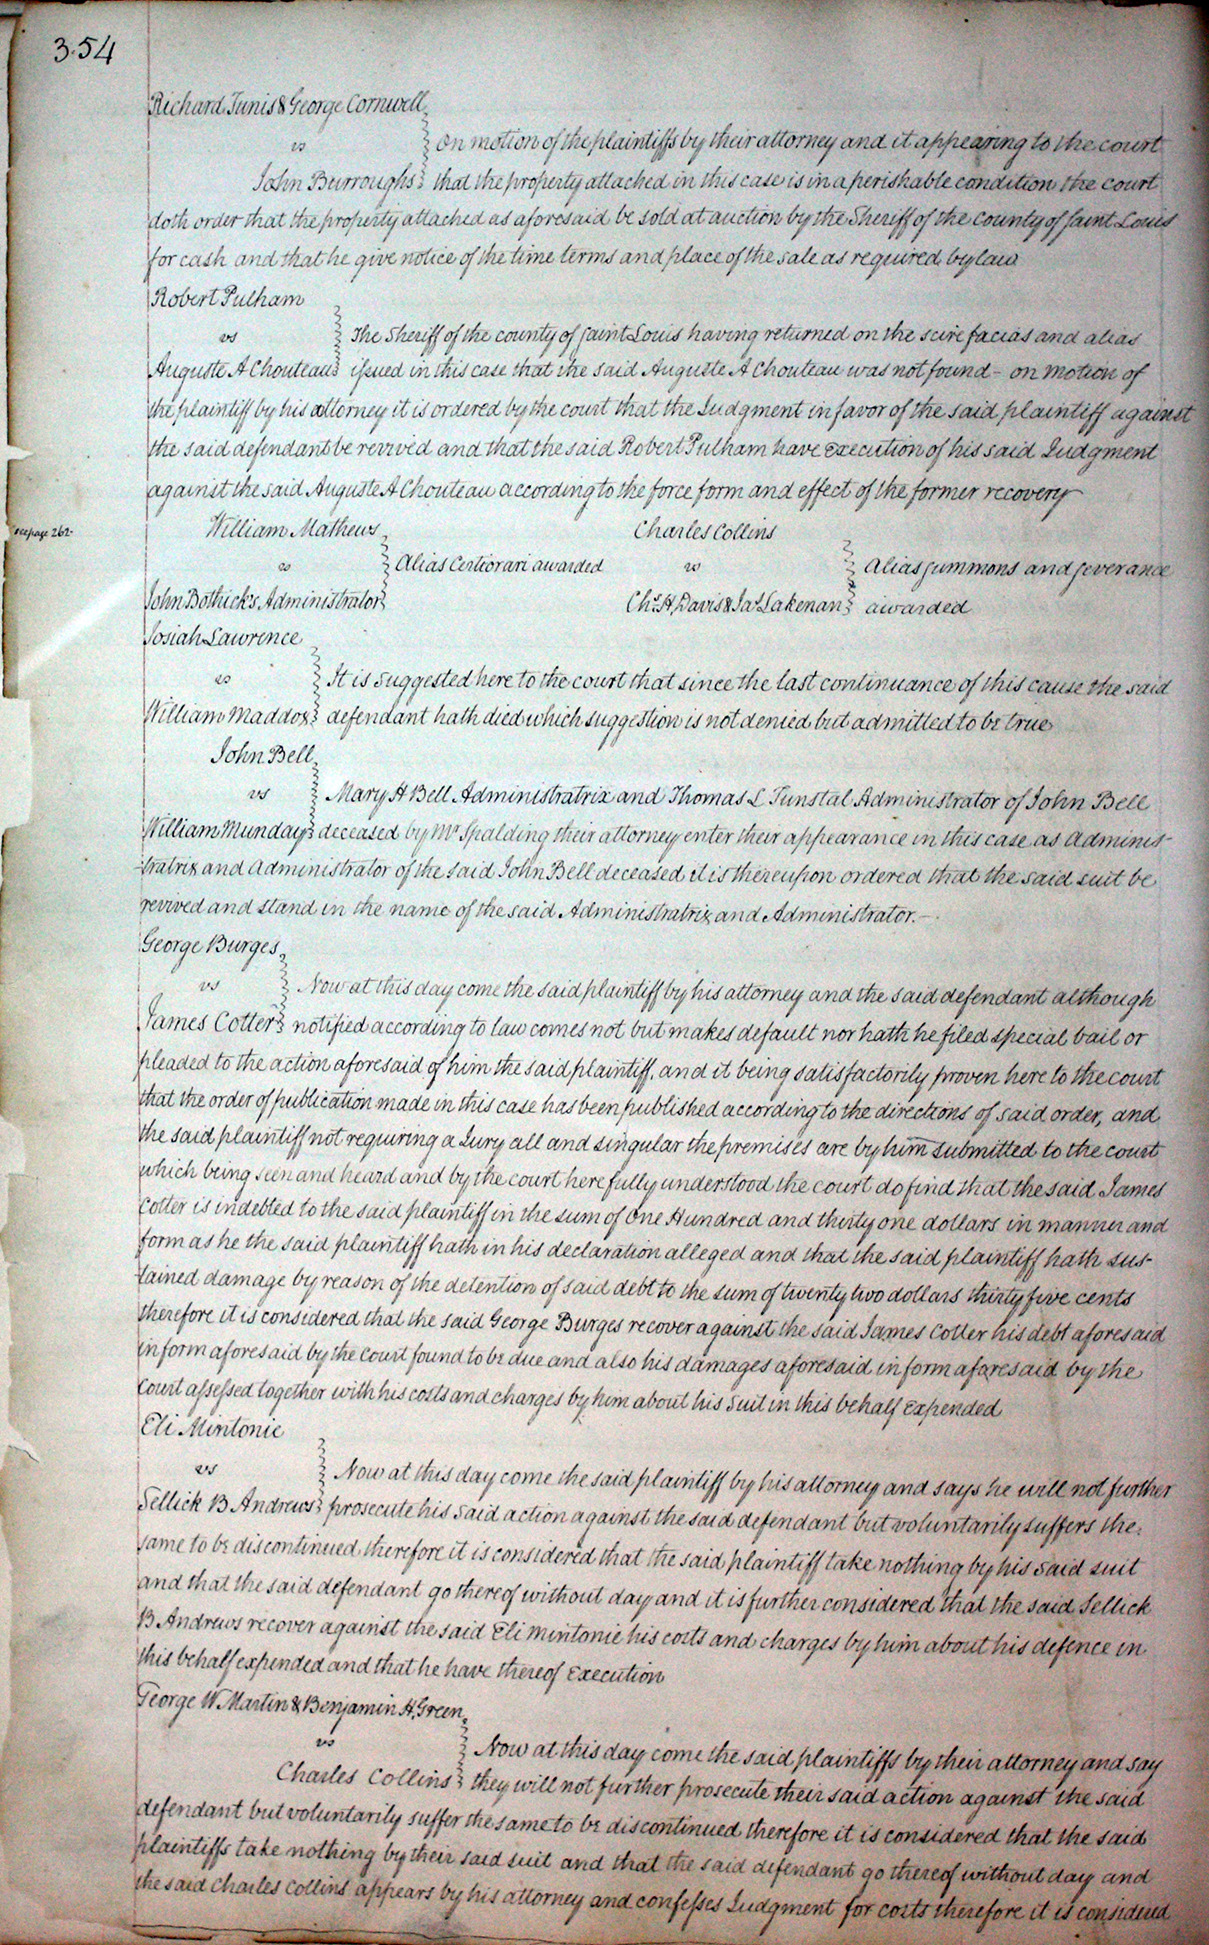 3.54
Richard Tunis & George Cornwell
vs
On motion of the plaintiffs by their attorney and it appearing to the court
John Burroughs that the property attached in this case is in a perishable condition the court
doth order that the property attached as aforesaid be sold at auction by the Sheriff of the county of Saint Louis
for cash and that he give notice of the time terms and place of the sale as required by law
Robert Pulham
vs
The Sheriff of the county of Saint Louis having returned on the scire facias and alias
Auguste A Chouteau issued in this case that the said Auguste A Chouteau was not found - on motion of
the plaintiff by his attorney it is ordered by the court that the Judgment in favor of the said plaintiff against
the said defendant be revived and that the said Robert Pulham have execution of his said Judgment
against the said Auguste A Chouteau according to the force form and effect of the former recovery
see page 262.
William Mathews
vs
Alias Certiorari awarded
John Bothick's Administrator
Charles Collins
vs
Alias summons and severance
Chs. H. Davis & Jas. Lakenan awarded
Josiah Lawrence
vs
It is suggested here to the court that since the last continuance of this cause the said
William Maddox defendant hath died which suggestion is not denied but admitted to be true
John Bell
vs
Mary H Bell Administratrix and Thomas L Tunstal Administrator of John Bell
William Munday deceased by Mr. Spalding their attorney enter their appearance in this case as Adminis-
-tratrix and Administrator of the said John Bell deceased it is thereupon ordered that the said suit be
revived and stand in the name of the said Administratrix and Administrator.-
George Burges
vs
Now at this day come the said plaintiff by his attorney and the said defendant although
James Cotter notified according to law comes not but makes default nor hath he filed special bail or
pleaded to the action aforesaid of him the said plaintiff, and it being satisfactorily proven here to the court
that the order of publication made in this case has been published according to the directions of said order, and
the said plaintiff not requiring a Jury all and singular the premises are by him submitted to the court
which being seen and heard and by the court here fully understood the court do find that the said James
Cotter is indebted to the said plaintiff in the sum of One Hundred and thirty one dollars in manner and
form as he the said plaintiff hath in his declaration alleged and that the said plaintiff hath sus-
tained damage by reason of the detention of said debt to the sum of twenty two dollars thirty five cents
therefore it is considered that the said George Burges recover against the said James Cotter his debt aforesaid
in form aforesaid by the court found to be due and also his damages aforesaid in form aforesaid by the
court assessed together with his costs and charges by him about his suit in this behalf expended
Eli Mintonie
vs
Now at this day come the said plaintiff by his attorney and says he will not further
Sellick B Andrews prosecute his said action against the said defendant but voluntarily suffers the
same to be discontinued therefore it is considered that the said plaintiff take nothing by his said suit
and that the said defendant go thereof without day and it is further considered that the said Sellick
B Andrews recover against the said Eli Mintonie his costs and charges by him about his defence in
this behalf expended and that he have thereof Execution
George W. Martin & Benjamin H. Green
vs
Now at this day come the said plaintiffs by their attorney and say
Charles Collins they will not further prosecute their said action against the said
defendant but voluntarily suffer the same to be discontinued therefore it is considered that the said
plaintiffs take nothing by their said suit and that the said defendant go thereof without day and
the said Charles Collins appears by his attorney and confesses Judgment for costs therefore it is considered